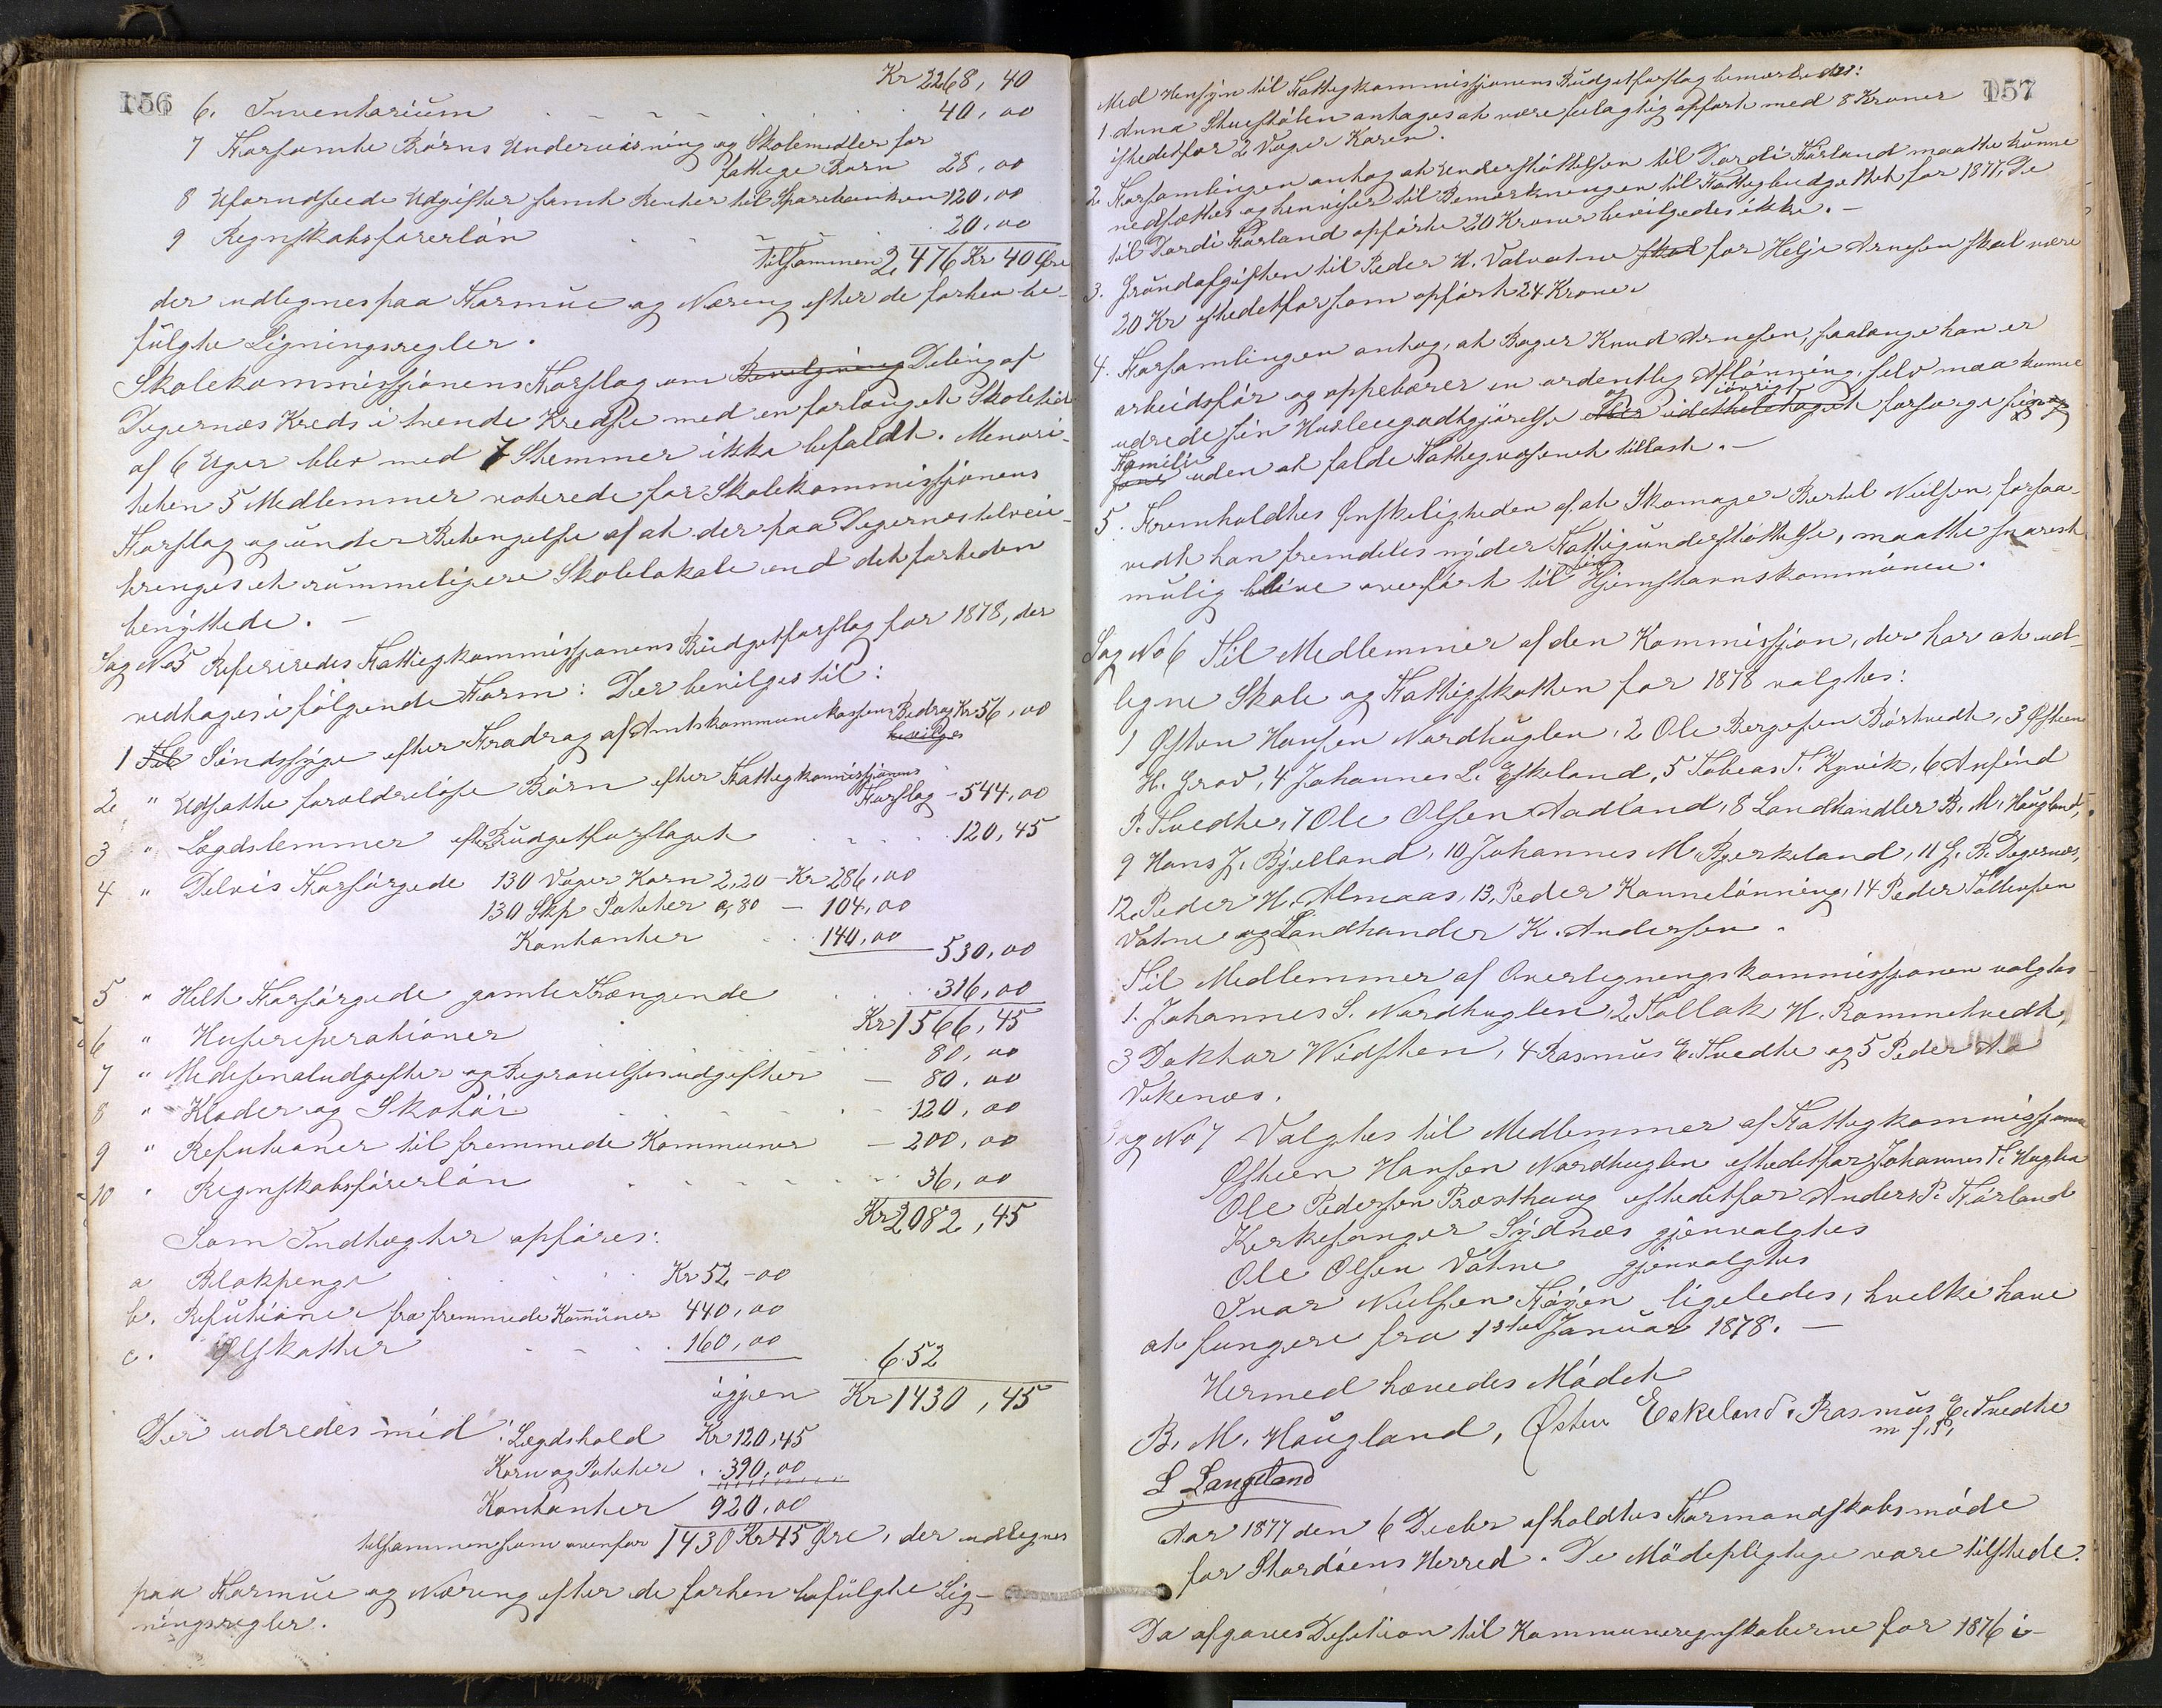 156
Kr 2268, 40
6. Inventarium 40, 00
7 Forsømte Børns Undervisning og Skolemidler for
fattige Børn 28, 00
8 Uforudseede Udgifter samt Renter til Sparebanken 120, 00
9 Regnskabsførerløn 20, 00
tilsammen 2476 Kr 40 Øre
der udlegnes paa Formue og Næring efter de forhen be-
fulgte Ligningsregler.
Skolekommissjonens Forslag om Bevilgning Deling af
Digernes Kreds i tvende Kredse med en forlænget Skoletid
af 6 Uger blev med 7 Stemmer ikke bifaldt. Menori-
teten 5 Medlemmer voterede for Skolekommissjonens
Forslag og under Betingelse af at der paa Digernes tilveie-
bringes et rummeligere Skolelokale end det forheden
benyttede. —
Sag No 5 Refereredes Fattigkommissjonens Budgetforslag for 1878, der
vedtoges i følgende Form: Der bevilges til:
1 Til Sindssyge efter Fradrag af Amtskommunekassens Bidrag Kr 56, 00
bevilges
2 " Udsatte forældreløse Børn efter Fattigkommissjonens
Forslag - 544, 00
3 " Lægdslemmer efter Budgetforslaget 120, 45
4 " Delvis Forsørgede 130 Voger Korn 2,20 - Kr 286, 00
130 Skp Poteter a 80 — 104, 00
Kontanter 140, 00 530, 00
5 " Helt Forsørgede gamle Trængende 316, 00
Kr 1566, 45
6 " Husreperationer 80, 00
7 " Medesinaludgifter og Begravelsesudgifter — 80, 00
8 " Klæder og Skotøi 120, 00
9 " Refutioner til fremmede Kommuner — 200, 00
10 " Regnskabsførerløn 36, 00
Kr 2082, 45
Som Indtægter opføres:
a Blokpenge Kr 52 - 00
b. Refutioner fra fremmede Kommuner 440, 00
c. Ølskatter 160, 00 652
igjen Kr 1430, 45
Der udredes med: Lægdshold Kr 120, 45
Korn og Poteter 390, 00
Kontanter 920, 00
tilsammen som ovenfor 1430 Kr 45 Øre, der udlegnes
paa Formue og Næring efter de forhen befulgte Lig-
ningsregler.
157
Med Hensyn til Fattigkommissjonens Budgetforslag bemærkedes:
1. Anna Stuestølen antages at være feilagtig opført med 8 Kroner
istedetfor 2 Voger Koren.
2 Forsamlingen antog at Understøttelsen til Dordi Førland maatte kunne
nedsættes og henviser til Bemærkningen til Fattigbudgettet for 1877. De
til Dordi Førland opførte 20 Kroner bevilgedes ikke. —
3. Grundafgiften til Peder H. Valvatne skal for Helje Arnesen skal være
20 Kr istedetfor som opført 24 Kroner
4. Forsamlingen antog, at Bager Knud Arnesen, saalænge han er
arbeidsfør og oppebærer en ordentlig Aflønning, selv maa kunne
udrede sin Husleiegodtgjørelse og iøvrigt forsørge sig og
Familie uden at falde Fattigvæsenet tillast. —
5. Fremholdtes Ønskeligheden af at Skomager Bertel Nielsen, forsaa-
vidt han fremdeles nyder Fattigunderstøttelse, maatte snarest
mulig blive overført til sin Hjemstavnskommunen.
Sag No 6 Til Medlemmer af den Kommissjon, der har at ud-
legne Skole og Fattigskatten for 1878 valgtes:
1 Østen Hansen Nordhuglen, 2 Ole Bergesen Børtvedt, 3 Østen
H. Grov, 4 Johannes L. Eskeland, 5 Tobias T. Kyvik, 6 Anfind
P. Tvedte, 7 Ole Olsen Aadland, 8 Landhandler B. M. Haugland,
9 Hans J. Bjelland, 10 Johannes M. Bjerkeland, 11 G. B. Digernes,
12. Peder H. Almaas, 13, Peder Kannelønning, 14 Peder Tollevsen
Vatne og Landhander K. Andersen.
Til Medlemmer af Overligningskommissjonen valgtes
1. Johannes S. Nordhuglen, 2 Tollak H. Rommetvedt,
3 Doktor Widsten, 4 Rasmus E. Tvedte og 5 Peder Aa
Vikenes.
Sag No 7 Valgtes til Medlemmer af Fattigkommissjonen
Østen Hansen Nordhuglen istedetfor Johannes S. Huglen
Ole Pedersen Præsthaug istedetfor Anders P. Førland
Kirkesanger Sydnes gjenvalgtes
Ole Olsen Vatne gjenvalgtes
Ivar Nielsen Føyen ligeledes, hvilke have
at fungere fra 1ste Januar 1878. —
Hermed hævedes Mødet
B. M. Haugland, Østen Eskeland. Rasmus E. Tvedte
m f. P.
L Langeland
Aar 1877 den 6 Decbr afholdtes Formandskabsmøde
for Stordøens Herred. De Mødepligtige vare tilstede.
Da afgaves Desition til Kommuneregnskaberne for 1876 i-